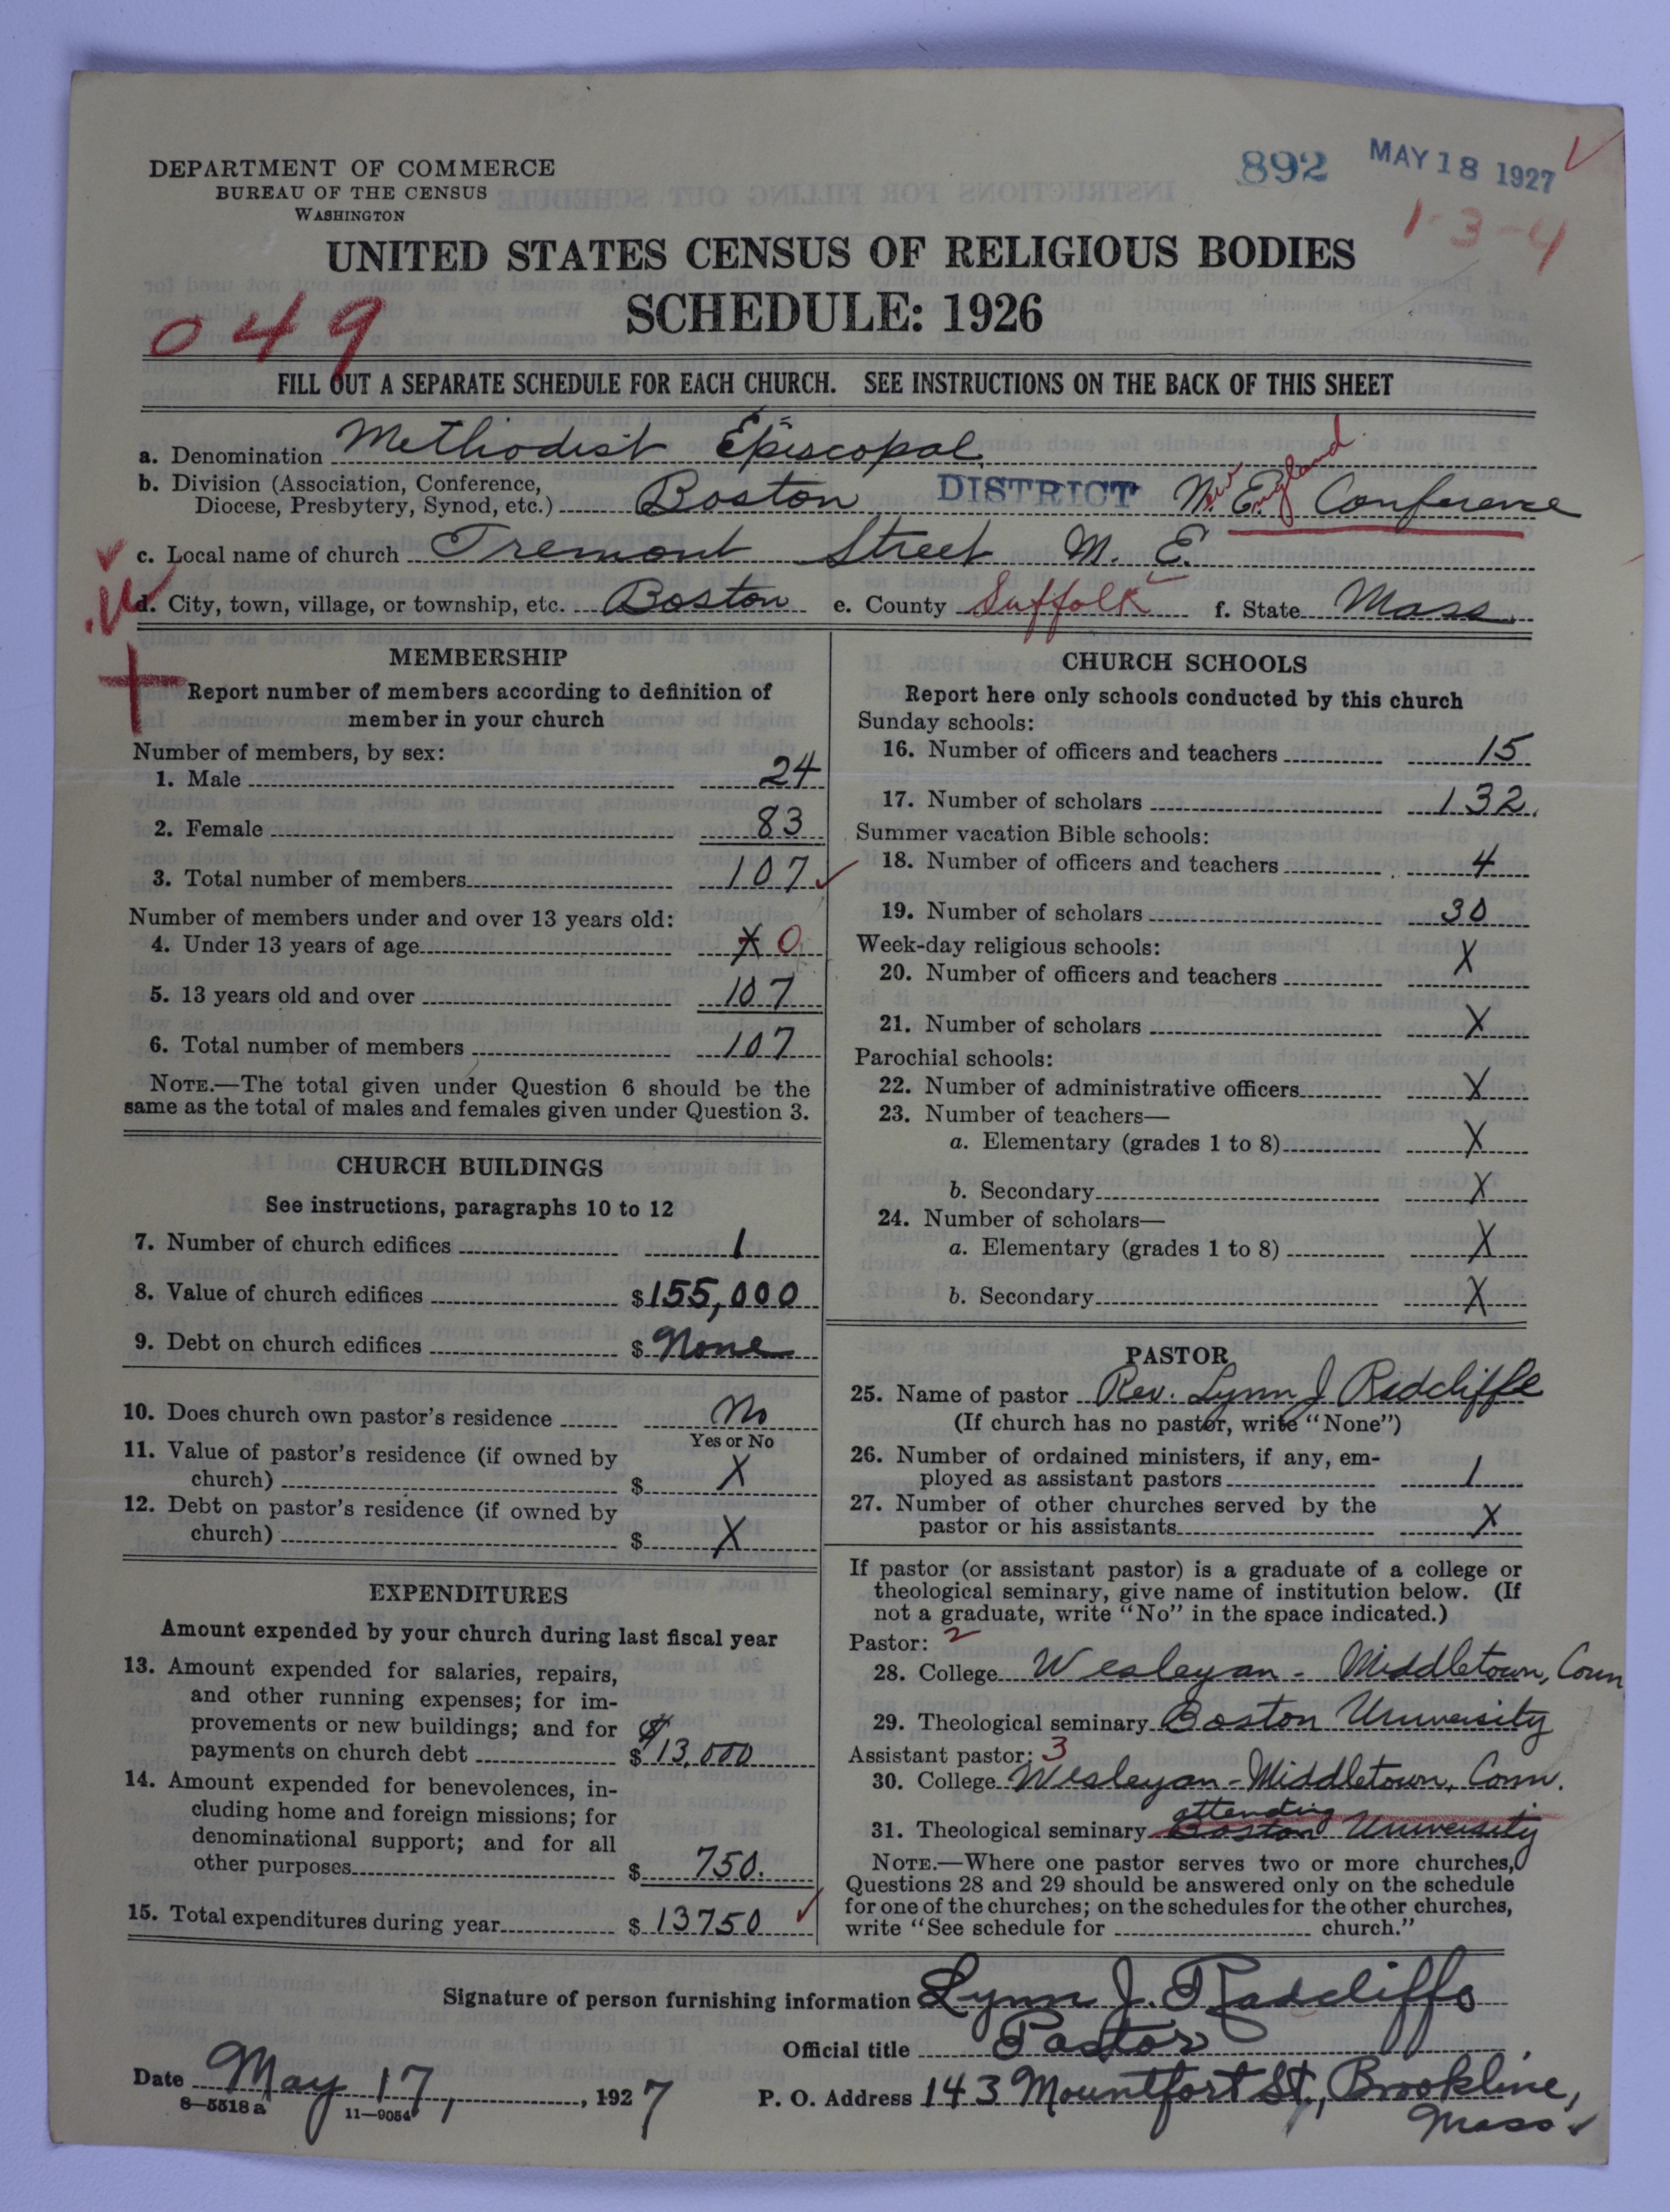 DEPARTMENT OF COMMERCE
BUREAU OF THE CENSUS
WASHINGTON
892 MAY 18 1927
1-3-4
UNITED STATES CENSUS OF RELIGIOUS BODIES
SCHEDULE: 1926
049
FILL OUT A SEPARATE SCHEDULE FOR EACH CHURCH. SEE INSTRUCTIONS ON THE BACK OF THIS SHEET
a. Denomination Methodist Episcopal
b. Division (Association, Conference,
Diocese, Presbytery, Synod, etc.) Boston DISTRICT New England Conference
c. Local name of church Tremont Street M. E.
d. City, town, village, or township, etc. Boston e. County Suffolk f. State Mass.
MEMBERSHIP
Report number of members according to definition of
member in your church
Number of members, by sex:
1. Male 24
2. Female 83
3. Total number of members 107
Number of members under and over 13 years old:
4. Under 13 years of age X 0
5. 13 years old and over 107
6. Total number of members 107
NOTE.—The total given under Question 6 should be the
same as the total of males and females given under Question 3.
CHURCH BUILDINGS
See instructions, paragraphs 10 to 12
7. Number of church edifices 1
8. Value of church edifices $155,000
9. Debt on church edifices $ None
10. Does church own pastor's residence No
Yes or No
11. Value of pastor's residence (if owned by
church) $ X
12. Debt on pastor's residence (if owned by
church) $ X
EXPENDITURES
Amount expended by your church during last fiscal year
13. Amount expended for salaries, repairs,
and other running expenses; for im-
provements or new buildings; and for
payments on church debt $ $13,000
14. Amount expended for benevolences, in-
cluding home and foreign missions; for
denominational support; and for all
other purposes $ 750.
15. Total expenditures during year $ 13750
CHURCH SCHOOLS
Report here only schools conducted by this church
Sunday schools:
16. Number of officers and teachers 15
17. Number of scholars 132.
Summer vacation Bible schools:
18. Number of officers and teachers 4
19. Number of scholars 30
Week-day religious schools:
20. Number of officers and teachers X
21. Number of scholars X
Parochial schools:
22. Number of administrative officers X
23. Number of teachers—
a. Elementary (grades 1 to 8) X
b. Secondary X
24. Number of scholars—
a. Elementary (grades 1 to 8) X
b. Secondary X
PASTOR
25. Name of pastor Rev. Lynn J Radcliffe
(If church has no pastor, write "None")
26. Number of ordained ministers, if any, em-
ployed as assistant pastors 1
27. Number of other churches served by the
pastor or his assistants X
If pastor (or assistant pastor) is a graduate of a college or
theological seminary, give name of institution below. (If
not a graduate, write "No" in the space indicated.)
Pastor: 2
28. College Wesleyan - Middletown, Conn
29. Theological seminary Boston University
Assistant pastor: 3
30. College Wesleyan - Middletown, Conn.
attending
31. Theological seminary Boston University
NOTE.—Where one pastor serves two or more churches,
Questions 28 and 29 should be answered only on the schedule
for one of the churches; on the schedules for the other churches,
write "See schedule for church."
Signature of person furnishing information Lynn J. Radcliffe
Official title Pastor
Date May 17, 1927 P. O. Address 143 Mountfort St., Brookline,
Mass.
8—5518a 11—9054